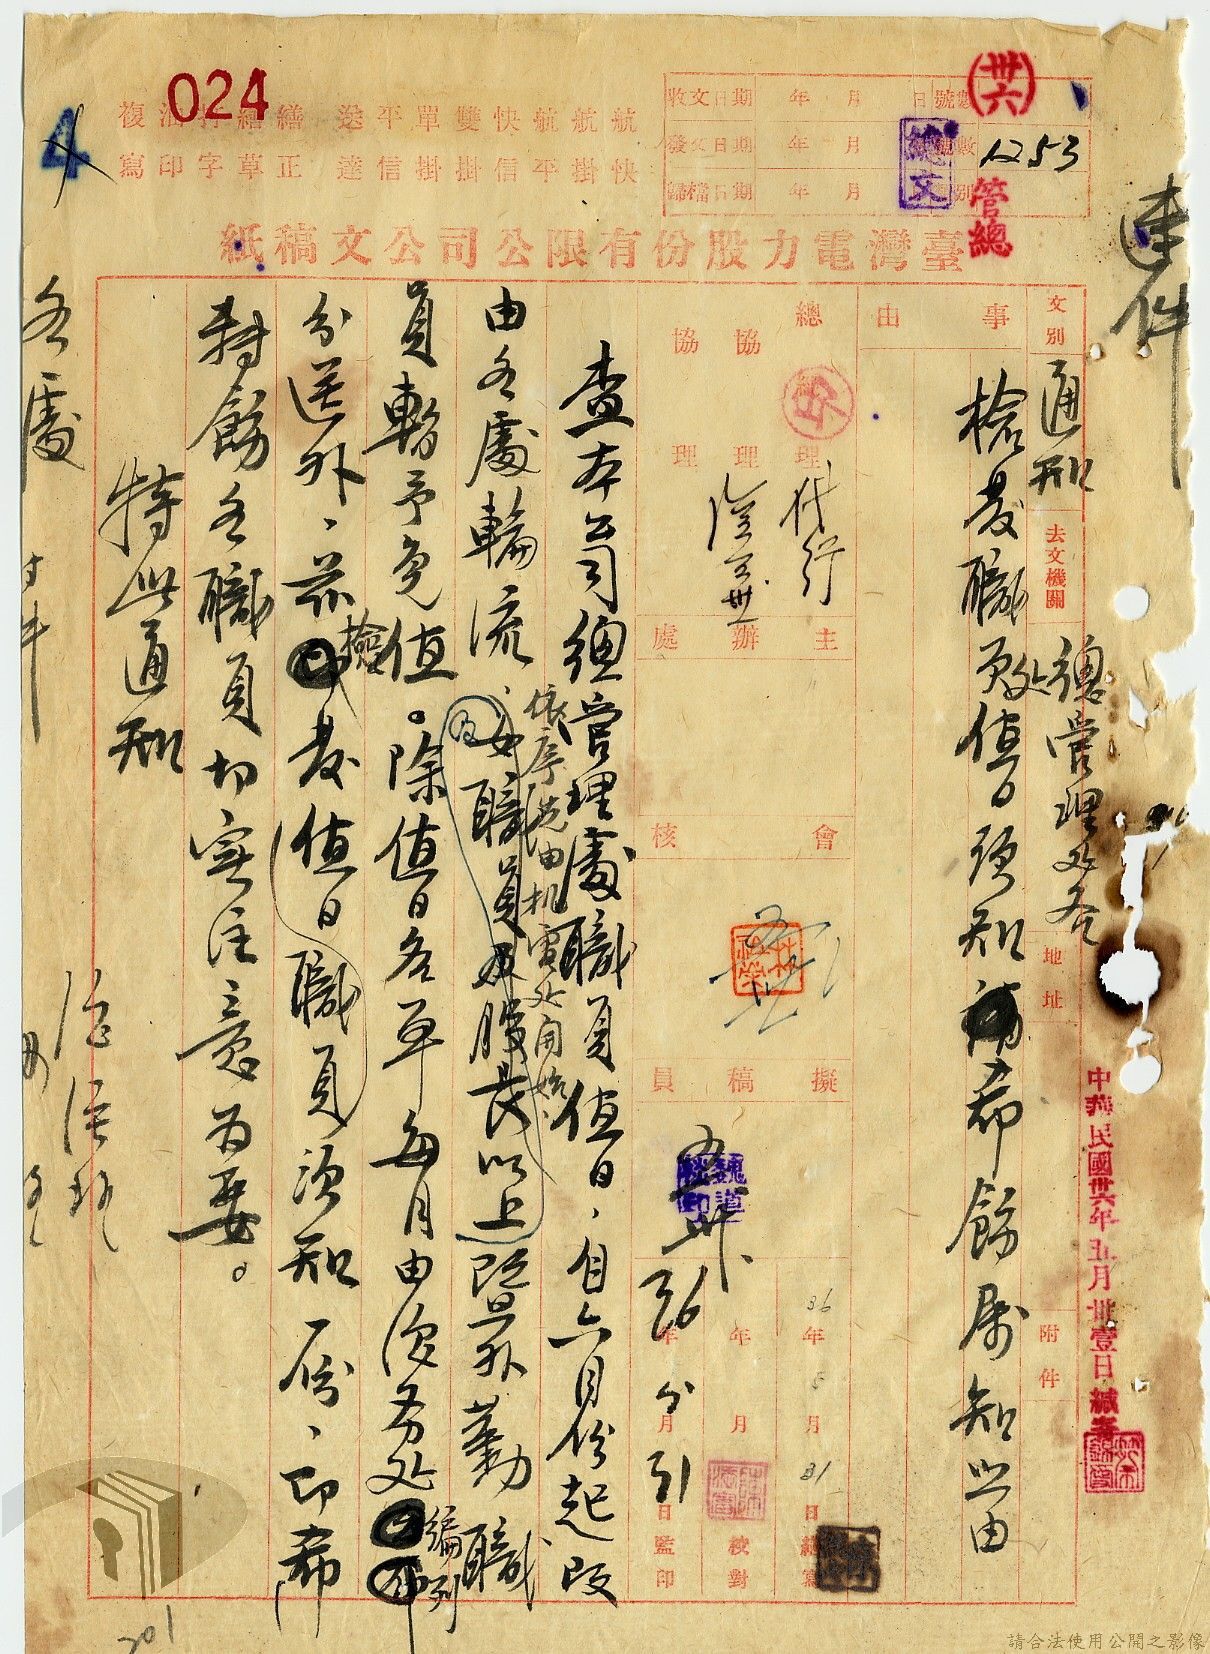 024
4
複油打繕繕送平單雙快航航航
寫印字草正達信掛掛信平掛快
收文日期 年 月 日
發文日期 年 月 日
歸檔日期 年 月 日
號數
(卅六)
總文
1253
管總
速件
臺灣電力股份有限公司公文稿紙
文別
通知
去文機關
總管理處各
地址
附件
中華民國卅六年五月卅壹日緘寄
事由
檢發職員值日須知希飭屬知照由
總經理
代行
協理
協理
主辦處
會核
擬稿員
魏道
36年5月31日繕寫
年 月 日校對
36年5月31日監印
查本公司總管理處職員值日、自六月份起改
由各處輪流、
依序先由机電處開始、
女職員及股長以上暨外勤職
員暫予免值。除值日名單每月由總務處
編列
分送外、茲
檢
發值日職員須知一份、印希
轉飭各職員切實注意為要。
特此通知
各處
201
請合法使用公開之影像